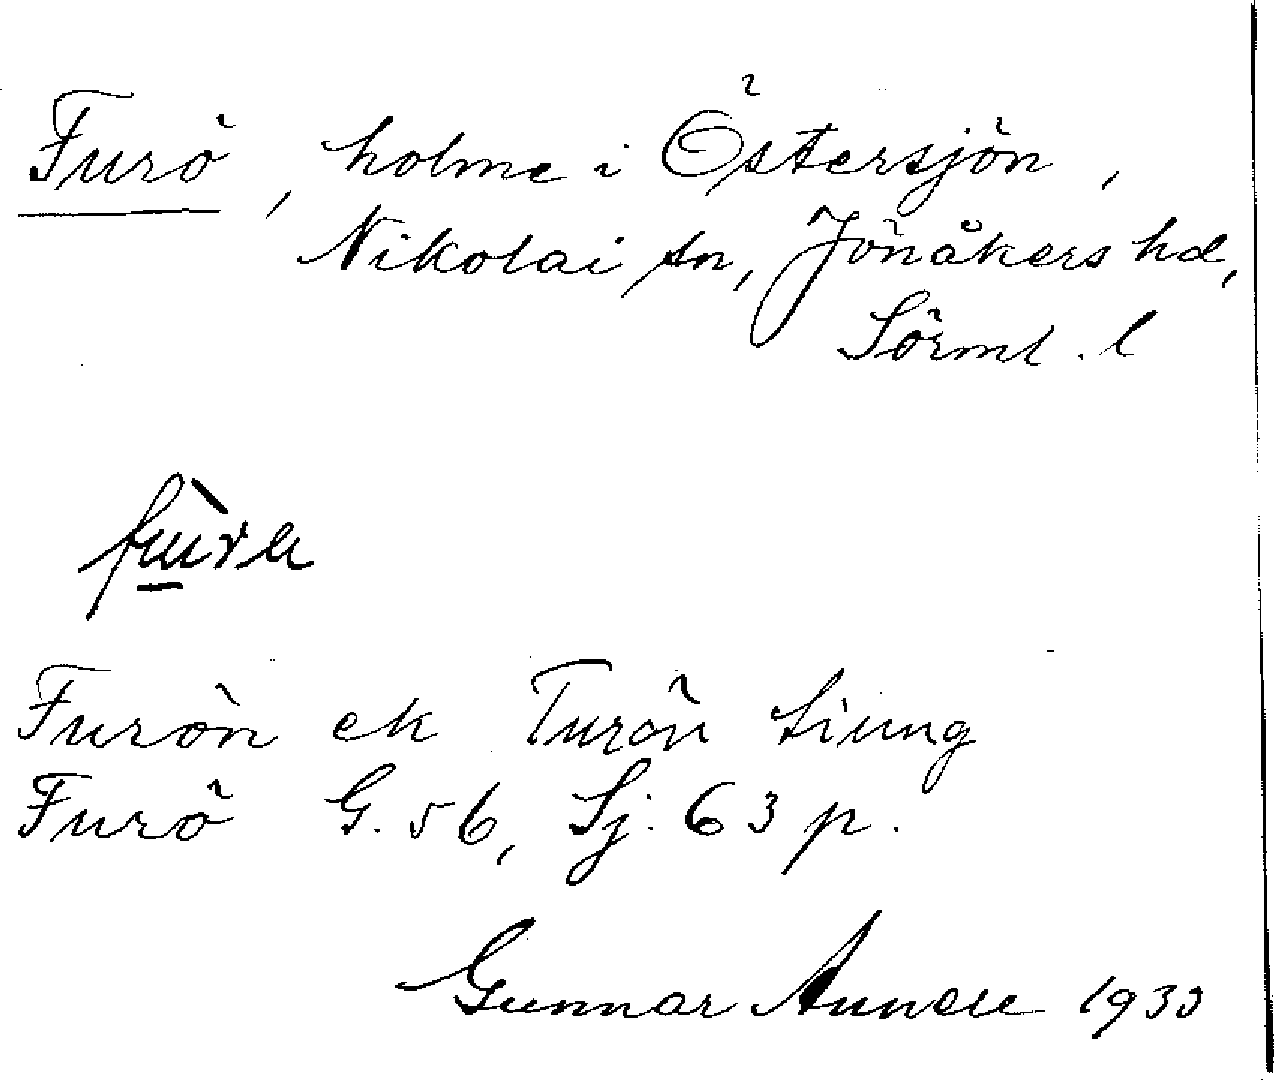 Furö, holme i Östersjön,
Nikolai sn, Jönåkers hd,
Sörml. l
Furön ek Turön
Furö G. 56, Sj. 63 p.
Gunnar 1933